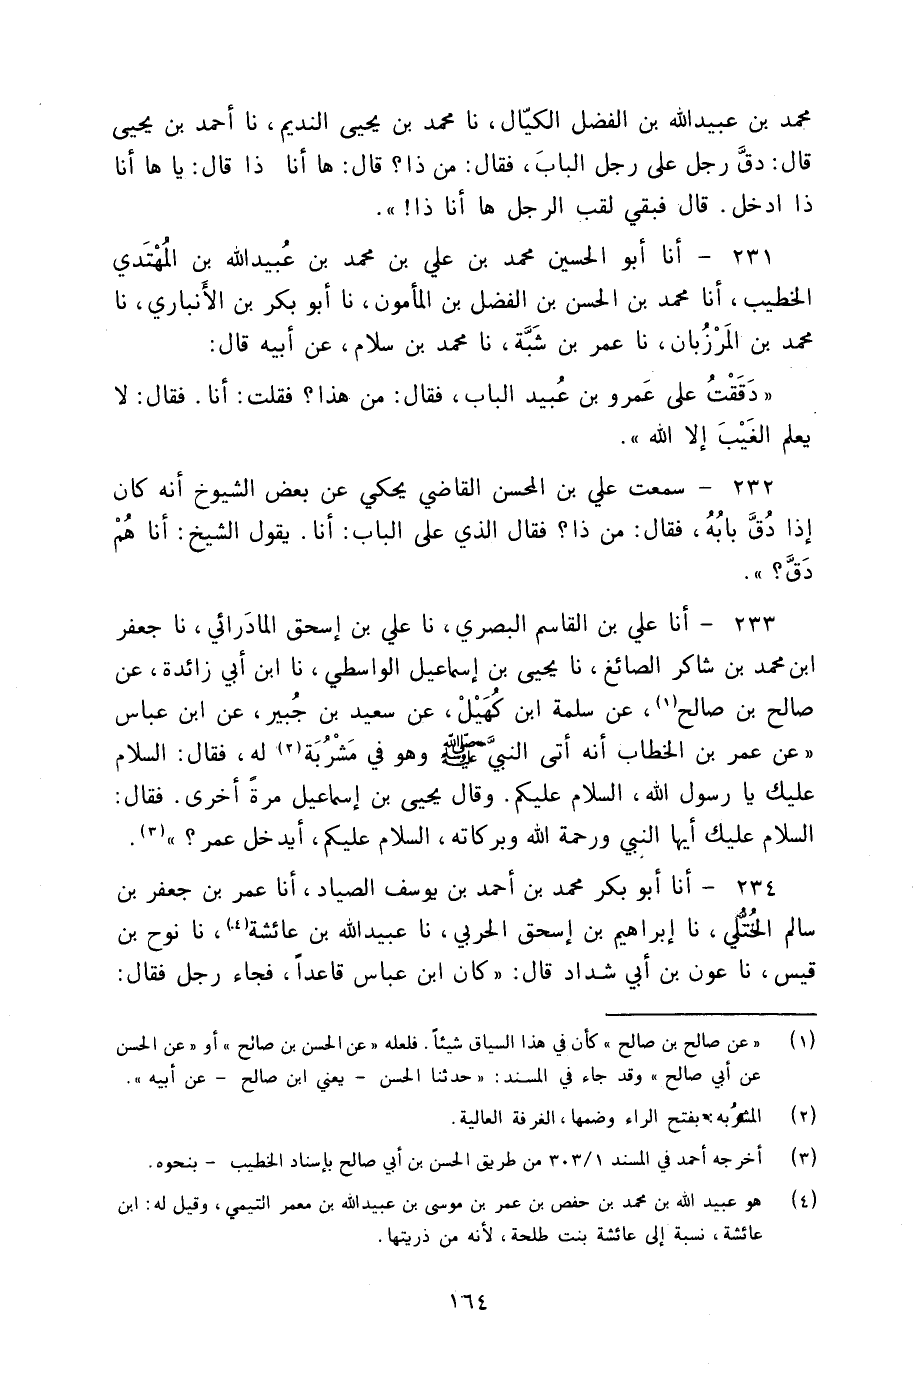 محمد بن عبيدالله بن الفضل الكيّال، نا محمد بن يحيى النديم، نا أحمد بن يحيى
قال: دقَّ رجل على رجل البابَ، فقال: من ذا؟ قال: ها أنا ذا قال: يا ها أنا
ذا ادخل. قال فبقي لقب الرجل ها أنا ذا! ».
٢٣١ - أنا أبو الحسين محمد بن علي بن محمد بن عُبيدالله بن المُهْتَدي
الخطيب، أنا محمد بن الحسن بن الفضل بن المأمون، نا أبو بكر بن الأَنباري، نا
محمد بن المَرْزُبان، نا عمر بن شَبَّة، نا محمد بن سلام، عن أبيه قال:
« دَقَقْتُ على عَمرو بن عُبيد الباب، فقال: من هذا؟ فقلت: أنا. فقال: لا
يعلم الغَيْبَ إلا الله ».
٢٣٢ - سمعت علي بن المحسن القاضي يحكي عن بعض الشيوخ أنه كان
إذا دُقَّ بابُهُ، فقال: من ذا؟ فقال الذي على الباب: أنا. يقول الشيخ: أنا هُمْ
دَقَّ؟ ».
٢٣٣ - أنا علي بن القاسم البصري، نا علي بن إسحق المادَرائي، نا جعفر
ابن محمد بن شاكر الصائغ، نا يحيى بن إسماعيل الواسطي، نا ابن أبي زائدة، عن
صالح بن صالح(١)، عن سلمة ابن كُهَيْلْ، عن سعيد بن جُبير، عن ابن عباس
« عن عمر بن الخطاب أنه أتى النبيَّ ﷺ وهو في مَشْرُبَة(٢) له، فقال: السلام
عليك يا رسول الله، السلام عليكم. وقال يحيى بن إسماعيل مرةً أخرى. فقال:
السلام عليك أيها النبي ورحمة الله وبركاته، السلام عليكم، أيدخل عمر؟ »(٣).
٢٣٤ - أنا أبو بكر محمد بن أحمد بن يوسف الصياد، أنا عمر بن جعفر بن
سالم الخُتُّلي، نا إبراهيم بن إسحق الحربي، نا عبيدالله بن عائشة(٤)، نا نوح بن
قيس، نا عون بن أبي شداد قال: « كان ابن عباس قاعداً، فجاء رجل فقال:
(١) « عن صالح بن صالح » كأن في هذا السياق شيئاً. فلعله « عن الحسن بن صالح » أو « عن الحسن
عن أبي صالح » وقد جاء في المسند: « حدثنا الحسن - يعني ابن صالح - عن أبيه ».
(٢) المشرُبه: بفتح الراء وضمها، الغرفة العالية.
(٣) أخرجه أحمد في المسند ٣٠٣/١ من طريق الحسن بن أبي صالح بإسناد الخطيب - بنحوه.
(٤) هو عبيد الله بن محمد بن حفص بن عمر بن موسى بن عبيدالله بن معمر التيمي، وقيل له: ابن
عائشة، نسبة إلى عائشة بنت طلحة، لأنه من ذريتها.
١٦٤